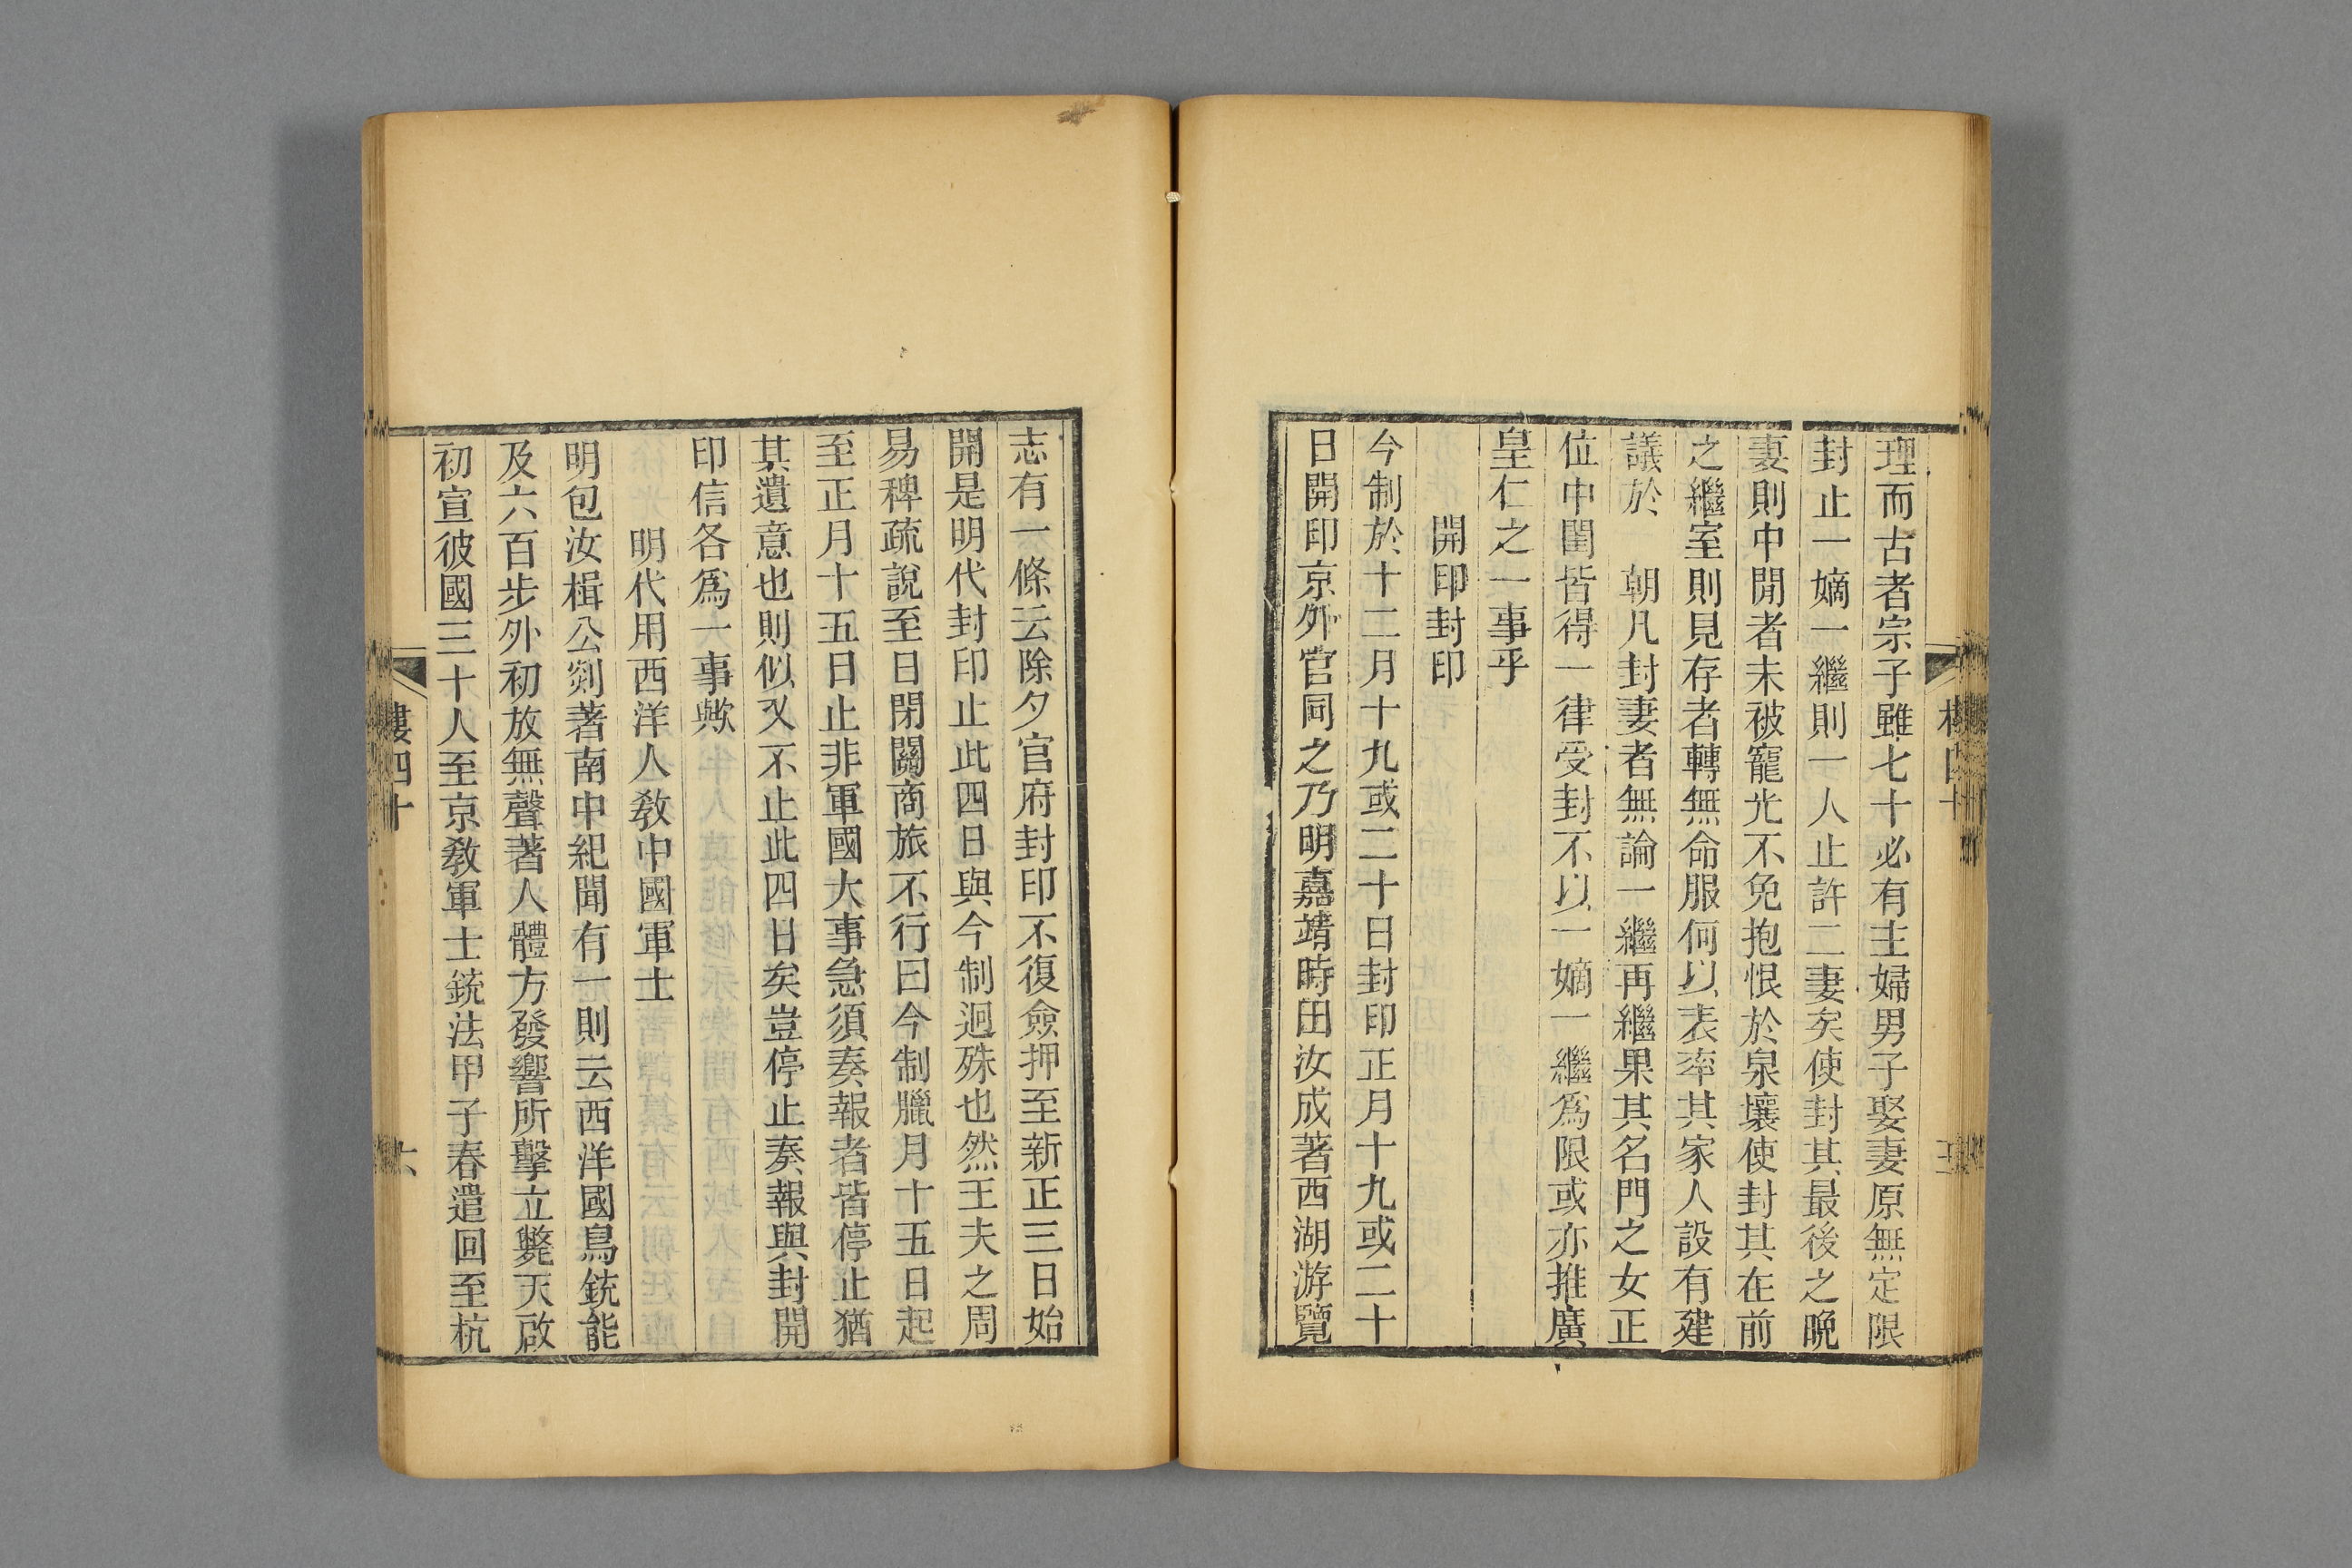 理而古者宗子雖七十必有主婦男子娶妻原無定限
封止一嫡一繼則一人止許二妻矣使封其最後之晩
妻則中閒者未被寵光不免抱恨於泉壤使封其在前
之繼室則見存者轉無命服何以表率其家人設有建
議於　朝凡封妻者無論一繼再繼果其名門之女正
位中閨皆得一律受封不以一嫡一繼爲限或亦推廣
皇仁之一事乎
開印封印
今制於十二月十九或二十日封印正月十九或二十
日開印京外官同之乃明嘉靖時田汝成著西湖游覽
志有一條云除夕官府封印不復僉押至新正三日始
開是明代封印止此四日與今制迥殊也然王夫之周
易稗疏說至日閉關商旅不行曰今制臘月十五日起
至正月十五日止非軍國大事急須奏報者皆停止猶
其遺意也則似又不止此四日矣豈停止奏報與封開
印信各爲一事歟
明代用西洋人敎中國軍士
明包汝楫公剡著南中紀聞有一則云西洋國鳥銃能
及六百步外初放無聲著人體方發響所擊立斃天啟
初宣彼國三十人至京敎軍士銃法甲子春遣回至杭
樓四十
六